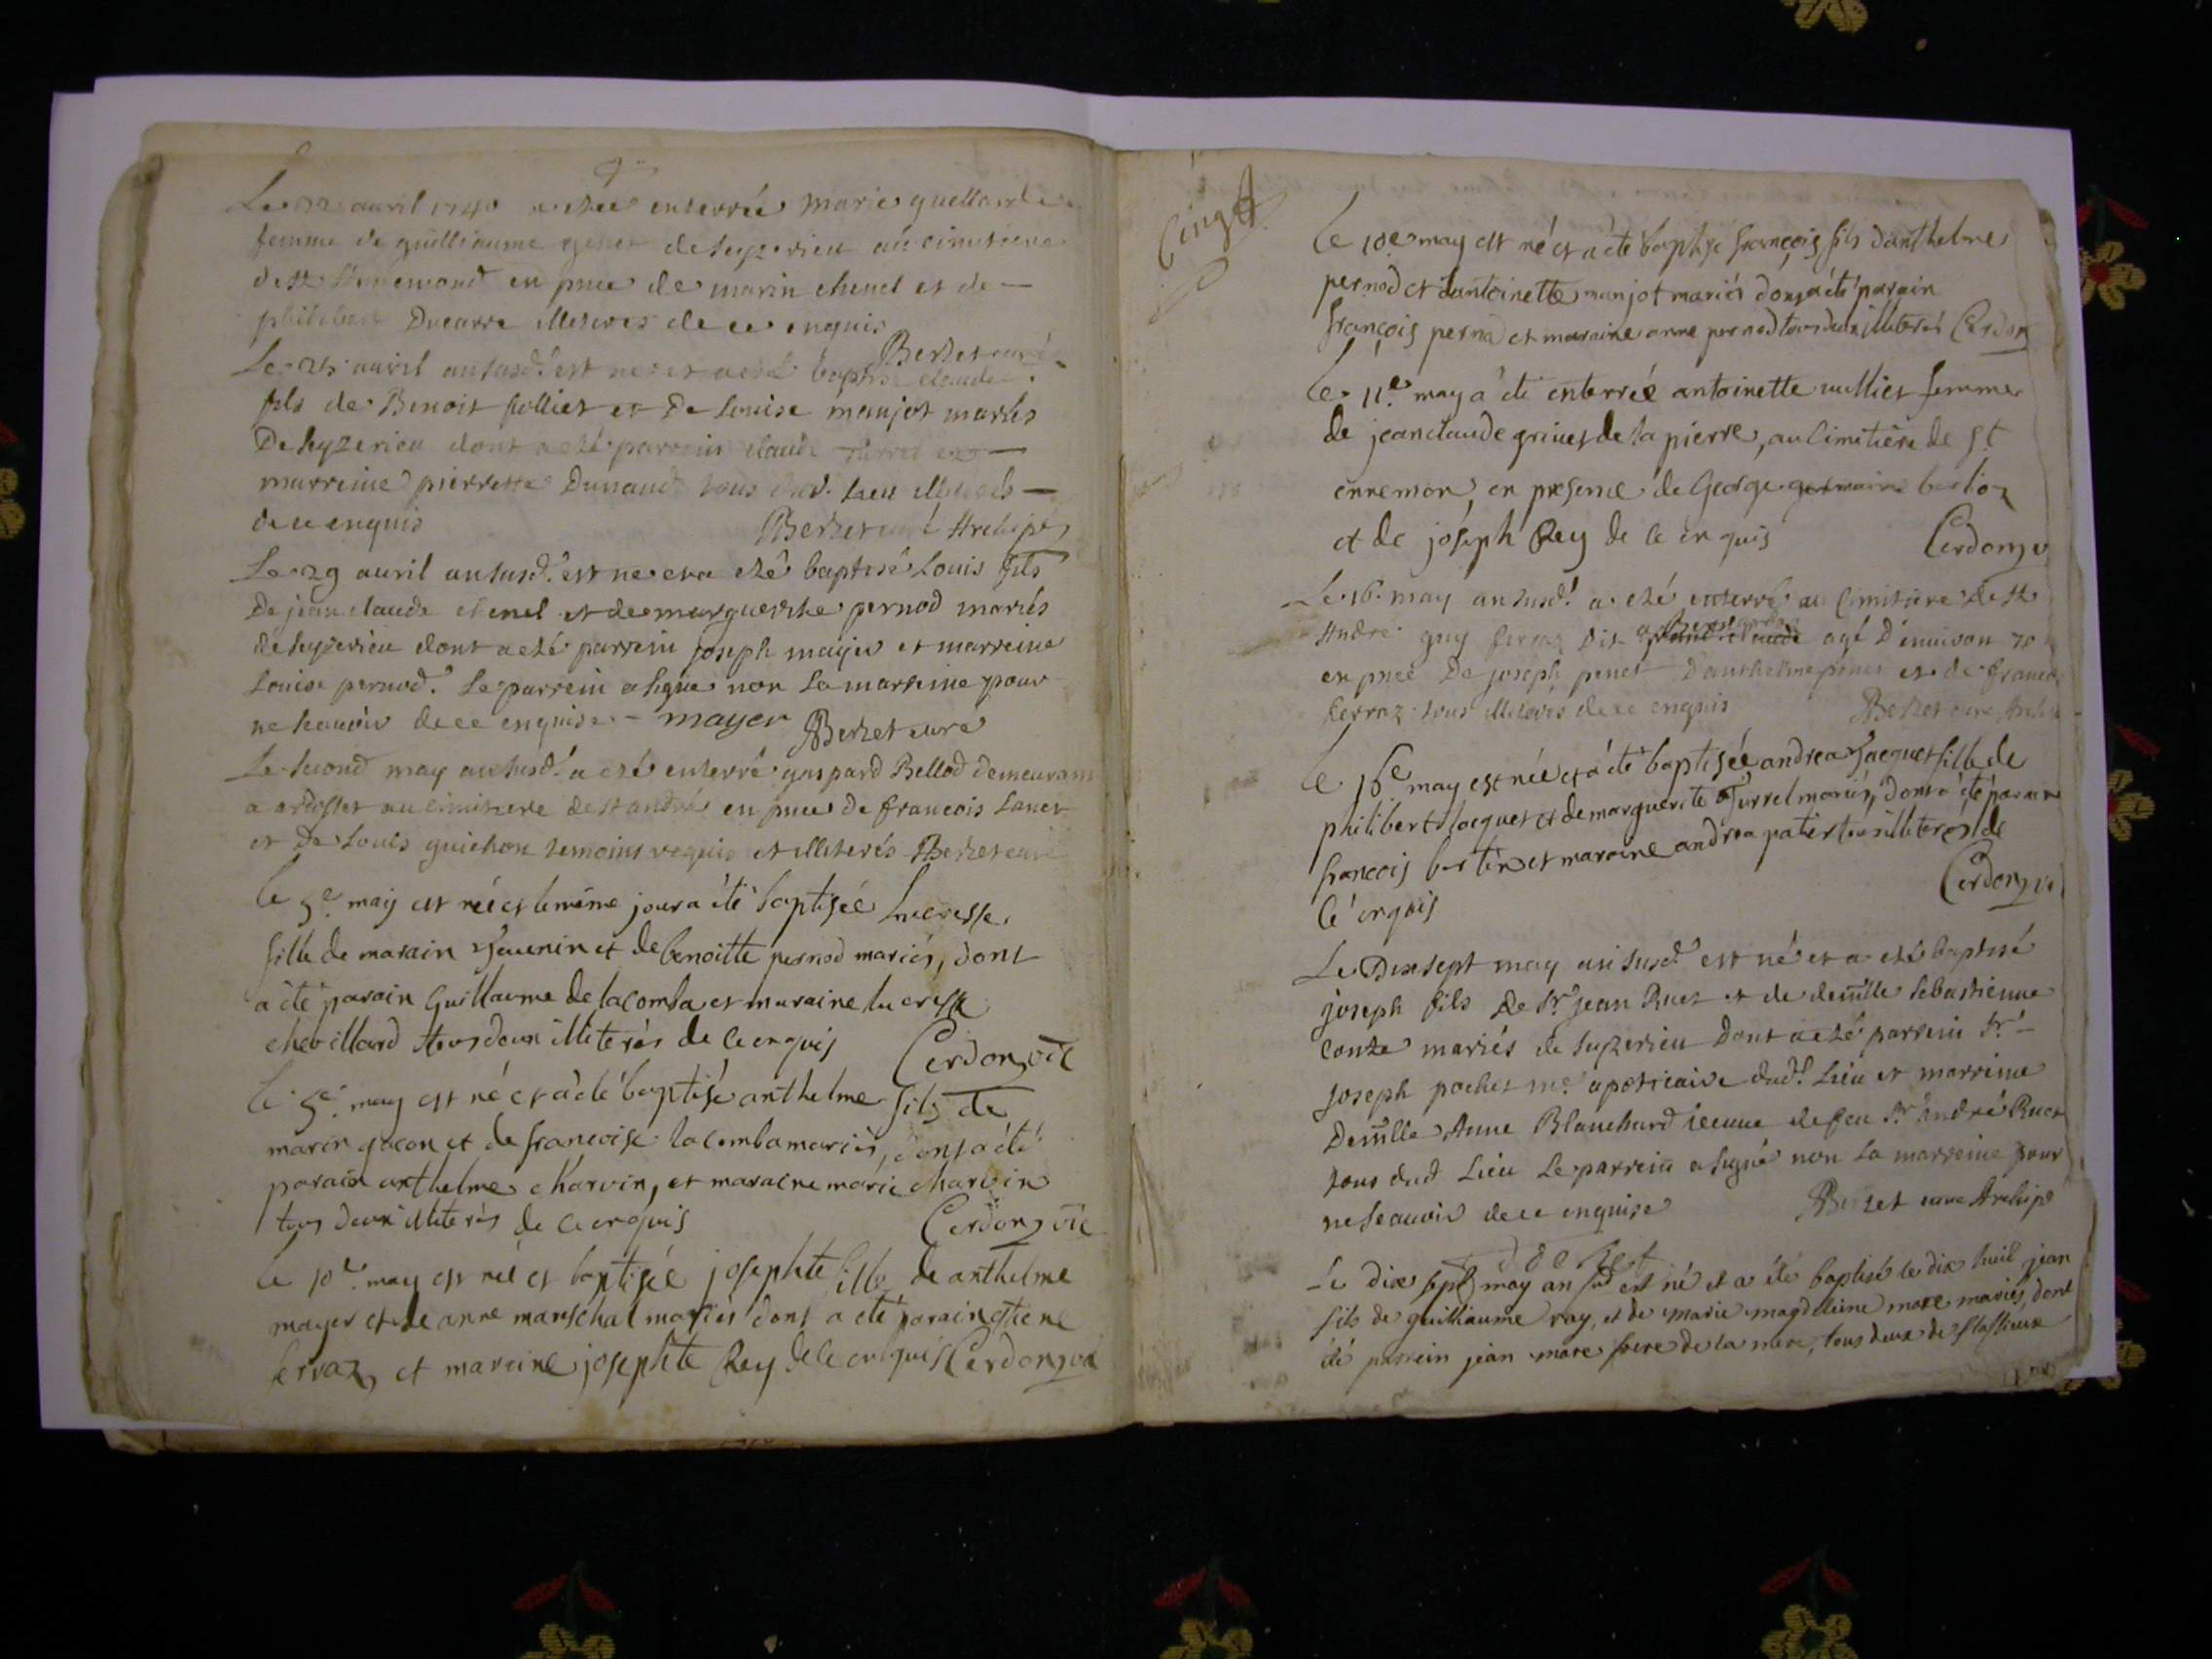 Le 22 avril 1740 a esté enterrée marie guelland
femme de guilliaume de seyzerieu au cimetiere
de st Annemond en pnce de marin chenel et de
philibert Ducarre illiterés de ce enquis
Berzet curé
Le 25 avril an susd. est né et a esté baptisé claude
fils de Benoit follier et de Louise manjot mariés
De seyzerieu dont a esté parrein claude Turrel et
marreine pierrette Dunand tous dud. lieu illiterés
de ce enquis Berzet curé Archipr
Le 29 avril an susd. est ne et a esté baptisé Louis fils
De jean claude chenel et de marguerithe pernod mariés
de seyzerieu dont a esté parrein joseph mayer et marreine
Louise pernod. Le parrein a signé non la marreine pour
ne scauoir de ce enquise mayer Berzet curé
Le second may an susd. a esté enterré gaspard Bellod demeurant
a ardosset au cimetiere de st andré en pnce de francois Lanet
et De Louis guichon temoins requis et illiterés Berzet curé
le 5e may est née et le même jour a été baptisée Lucresse
fille de marain Jeuenin et de benoitte pernod mariés, dont
a été parain Guillaume de lacomba et maraine lucresse
chevillard tous deux illiterés de ce enquis Cerdon, vic
le 5e. may est né et a été baptisé anthelme fils de
marin gacon et de francoise lacomba mariés, dont a été
parain anthelme charvin, et maraine marie charvin
tous deux illiterés de ce enquis Cerdon, vic
le 10e. may est née et baptisée josephte fille de anthelme
mayer et de anne marechal mariés dont a été parain etiene
ferraz, et maraine josephte Rey de ce enquis Cerdon, vic
Cinq
le 10e may est né et a été baptisé françois fils danthelme
pernod et dantoinette manjot mariés dont a été parain
françois pernod et maraine anne pernod tous deux illiterés Cerdon
le 11e. may a été enterrée antoinette vullier femme
de jean claude grinet de la pierre, au cimitière de St
ennemon, en presence de George berlioz
et de joseph Rey de ce enquis Cerdon, v
Le 16. may an susd. a esté enterré au cimitiere de st
André guy ferraz dit agé D'enuiron 70
en pnce De joseph penet D'anthelme penet et de francois
ferraz tous illiterés de ce enquis Berzet curé Archip
le 16e may est née et a été baptisée andrea Jacquet fille de
philibert Jacquet et de marguerite Turrel mariés, dont a été parain
françois bertin et maraine andrea patier tous illiterés de
ce enquis Cerdon, vi
Le Dix sept may an susd. est né et a esté baptisé
joseph fils De Sr. jean Ruet et de demlle sebastienne
conte mariés de seyzerieu Dont a esté parrein Sr.
joseph pochet me. apoticaire dud. Lieu et marreine
Demlle Anne Blanchard veuue de feu Sr. andré Ruet
tous dud Lieu Le parrein a signé non la marreine pour
ne scauoir de ce enquise Berzet curé Archip
pochet
Le dix sept may an sud est né et a été baptisé le dix huit jean
fils de guilliaume ray, et de marie magdeleine mare mariés, dont
été parrein jean mare frere de la mere, tous deux de flassieux